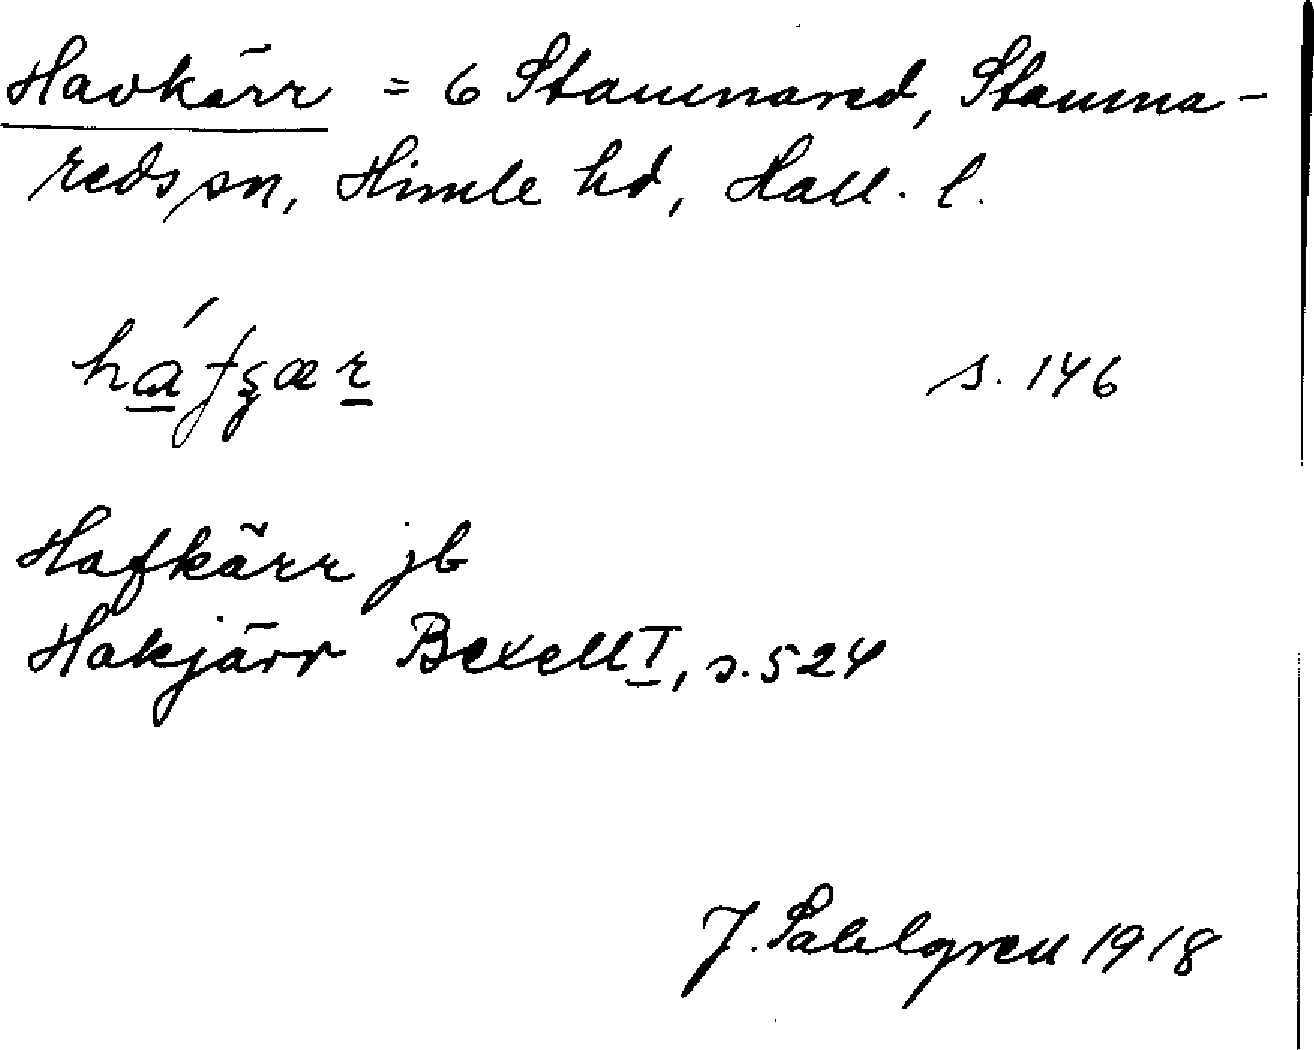 Havkärr = 6 Stamnared, Stamna-
reds sn, Himle hd, Hall. l.
há̱fʂæṟ s. 146
Hafkärr jb
Hakjärr Bexell I, s. 524
J. Sahlgren 1918